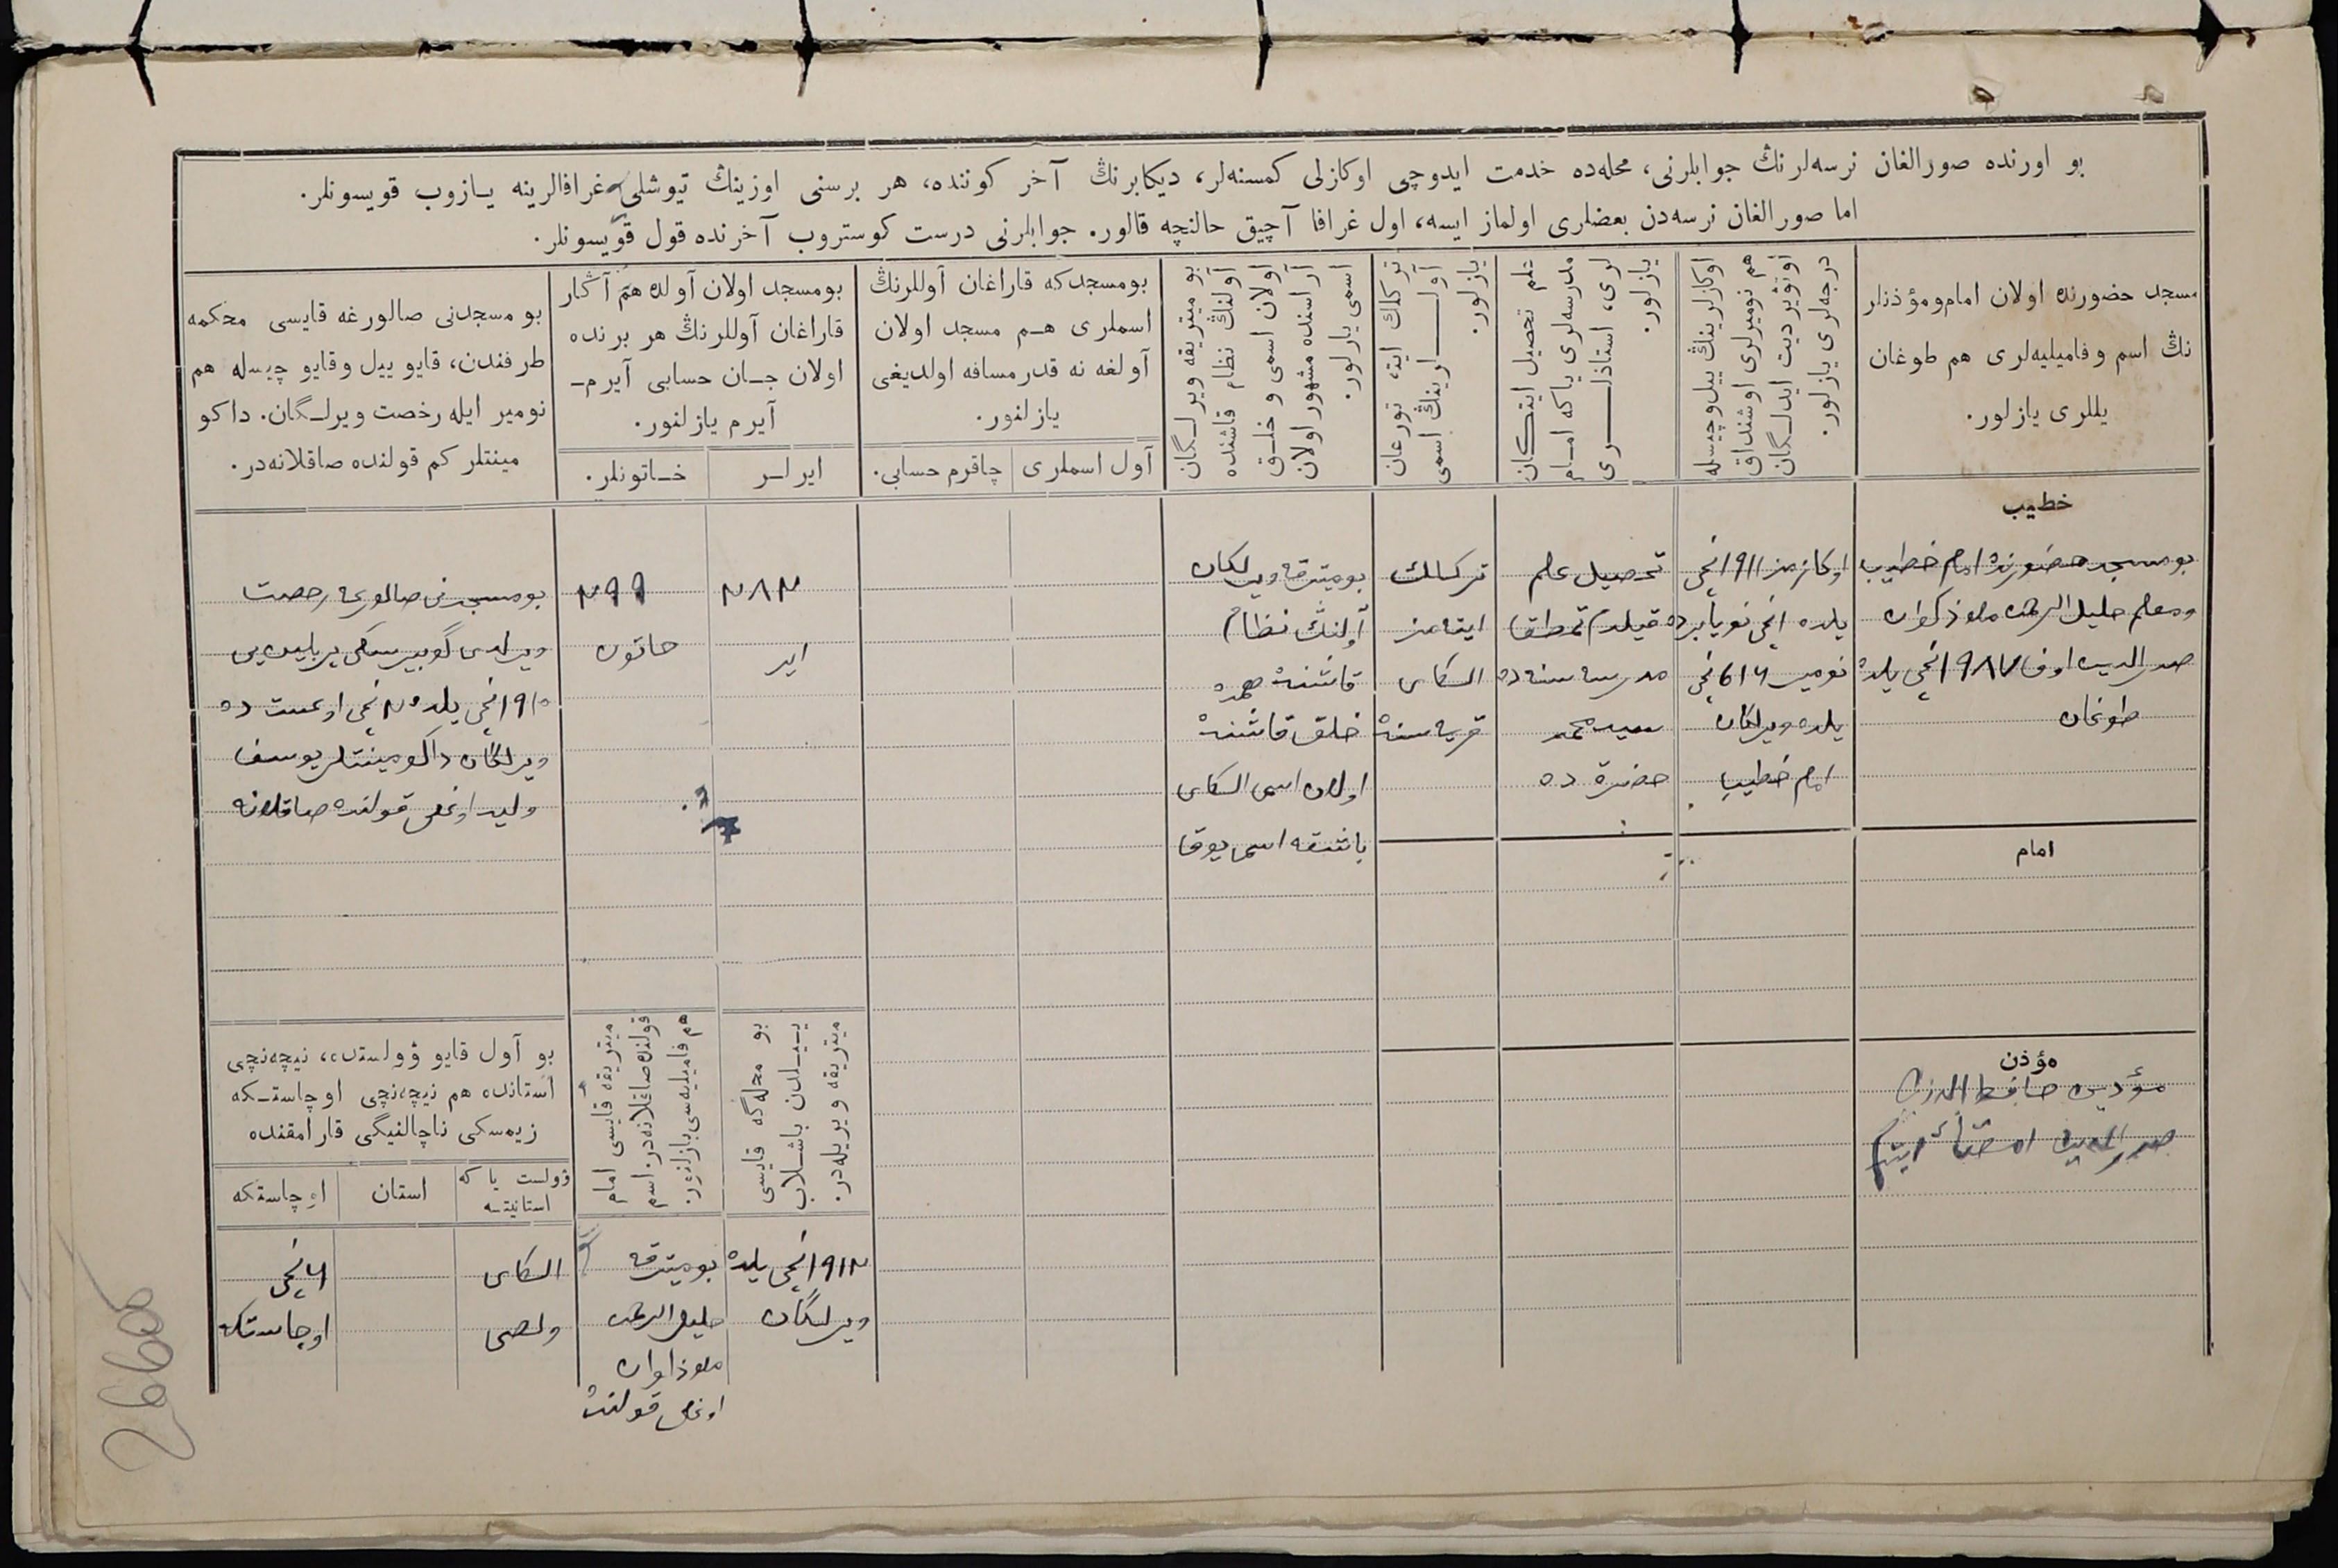 بو اورنده صورالغان نرسه‌لرنڭ جوابلرنی، محله‌ده خدمت ایدوچی اوکازلی کمسنه‌لر، دیکابرنڭ آخر کوننده، هر برسنی اوزینڭ تیوشلی غرافالرینه یازوب قویسونلر.
اما صورالغان نرسه‌دن بعضلری اولماز ایسه، اول غرافا آچیق حالنچه قالور. جوابلرنی درست کوستروب آخرنده قول قویسونلر.
مسجد حضورنده اولان امام و مؤذنلر
نڭ اسم و فامیلیه‌لری هم طوغان
یللری یازلور.
اوکازلرینڭ ییل و چیسله
هم نومیرلری اوشنداق
اوتویردیت ایدلـگان
درجه‌لری یازلور.
علم تحصیل ایتکان
مدرسه‌لری یا که امـام
لری، استاذلـــری
یازلور.
ترکلك ایته تورغان
آولـــرینڭ اسمی
یازلور.
بو میتریقه ویرلـگان
آولنڭ نظام قاشنده
اولان اسمی و خلـق
آراسنده مشهور اولان
اسمی یازلور.
بو مسجدکه قاراغان آوللرنڭ
اسملری هـم مسجد اولان
آولغه نه قدر مسافه اولدیغی
یازلنور.
آول اسملری
چاقرم حسابی.
بو مسجد اولان آولده هم آڭار
قاراغان آوللرنڭ هر برنده
اولان جـان حسابی آیرم-
آیرم یازلنور.
ایرلـر
خـاتونلر.
بو مسجدنی صالورغه قایسی محکمه
طرفندن، قایو ییل و قایو چیسله هم
نومیر ایله رخصت ویرلـگان. داکو
مینتلر کم قولنده صاقلانه‌در.
خطیب
بو مسجد حضورنده امام خطیب
ومعلم خلیل الرحمن ملا ذکوان
صدرالدین اوف ۱۹۸۷ نچی یلده
طوغان
اوکازمز ۱۹۱۱ نچی
یلده ۱نچی نویابرده
نومیر ۶۱۶ نچی
یلده ویرلکان
امام خطیب
تحصیل علم
قیلدم تمطق
مدرسه سنده
سید محمد
حضرةده
ترکلك
ایتامز
السکای
قریه سنده
بو میترقه ویرلکان
آولنڭ نظام
قاشنده همده
خلق قاشنده
اولان اسمی السکای
باشقه اسمی یوق
۲۸۲
ایر
۲۹۹
خاتون
بو مسجدنی صالورغه رخصت
ویرلدی گوبیرنسکی پربلینیی
۱۹۱۰ نچی یلده ۲۰ نچی اوغست ده
ویرلگان داکومینتلر یوسف
ولید اوغلی قولنده صاقلانه
امام
مؤذن
مؤذن حافظ الدین
صدرالدین اوف
بو محله‌گه قایسی
ییـلدن باشـلاب
میتریقه ویریله‌در.
میتریقه قایسی امام
قولنده صاقلانه‌در، اسم
هم فامیلیه‌سی یازلنور.
بو آول قایو وولستده، نیچه‌نچی
استانده هم نیچه‌نچی اوچاستـکه
زیمسکی ناچالنیگی قارامقنده
وولست یا که
استانیتسه
استان
اوچاستکه
۱۹۱۲ نچی یلده
ویرلگان
بو میترقه
خلیل الرحمن
ملا ذاوان
اوغلی قولنده
السکای
ولصی
۶ نچی
اوچاستکه